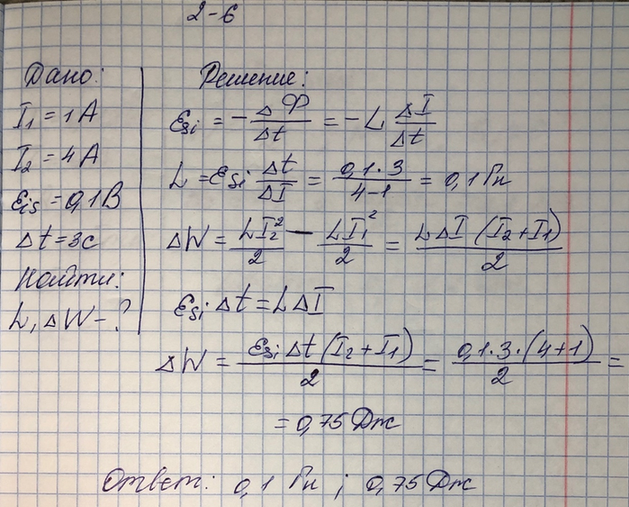 2-6
Дано:
I₁ = 1А
I₂ = 4А
Ɛis = 0,1В
Δt = 3с
Найти:
L, ΔW - ?
Решение:
Ɛsi = -ΔФ/Δt = -L ΔI/Δt
L = Ɛsi Δt/ΔI = 0,1·3/4-1 = 0,1 Гн
ΔW = LI₂²/2 - LI₁²/2 = LΔI (I₂+I₁)/2
Ɛsi Δt = LΔI
ΔW = Ɛsi Δt (I₂+I₁)/2 = 0,1·3·(4+1)/2 =
= 0,75 Дж
Ответ: 0,1 Гн ; 0,75 Дж